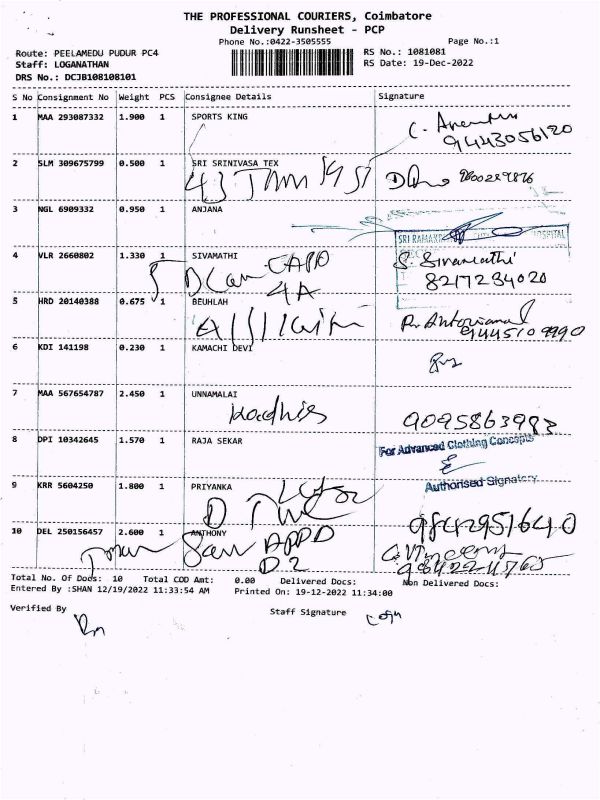 THE PROFESSIONAL COURIERS, Coimbatore
Delivery Runsheet - PCP
Phone No.:0422-3505555
Page No.:1
Route: PEELAMEDU PUDUR PC4
RS No.: 1081081
Staff: LOGANATHAN
RS Date: 19-Dec-2022
DRS No.: DCJB108108101
S No Consignment No Weight PCS Consignee Details Signature
1 MAA 293087332 1.900 1 SPORTS KING
9443056120
2 SLM 309675799 0.500 1 SRI SRINIVASA TEX
43
3 NGL 6909332 0.950 1 ANJANA
SRI RAMAKR HOSPITAL
4 VLR 2660802 1.330 1 SIVAMATHI S. Sivamathi
4A 8217234020
5 HRD 20140388 0.675 1 BEUHLAH
9445109990
6 KDI 141198 0.230 1 KAMACHI DEVI
7 MAA 567654787 2.450 1 UNNAMALAI
9095863983
8 DPI 10342645 1.570 1 RAJA SEKAR For Advanced Clothing Concepts
Authorised Signatory
9 KRR 5604250 1.800 1 PRIYANKA
9842951640
10 DEL 250156457 2.600 1 ANTHONY
Total No. Of Docs: 10 Total COD Amt: 0.00 Delivered Docs: Non Delivered Docs:
Entered By :SHAN 12/19/2022 11:33:54 AM Printed On: 19-12-2022 11:34:00
Verified By Staff Signature